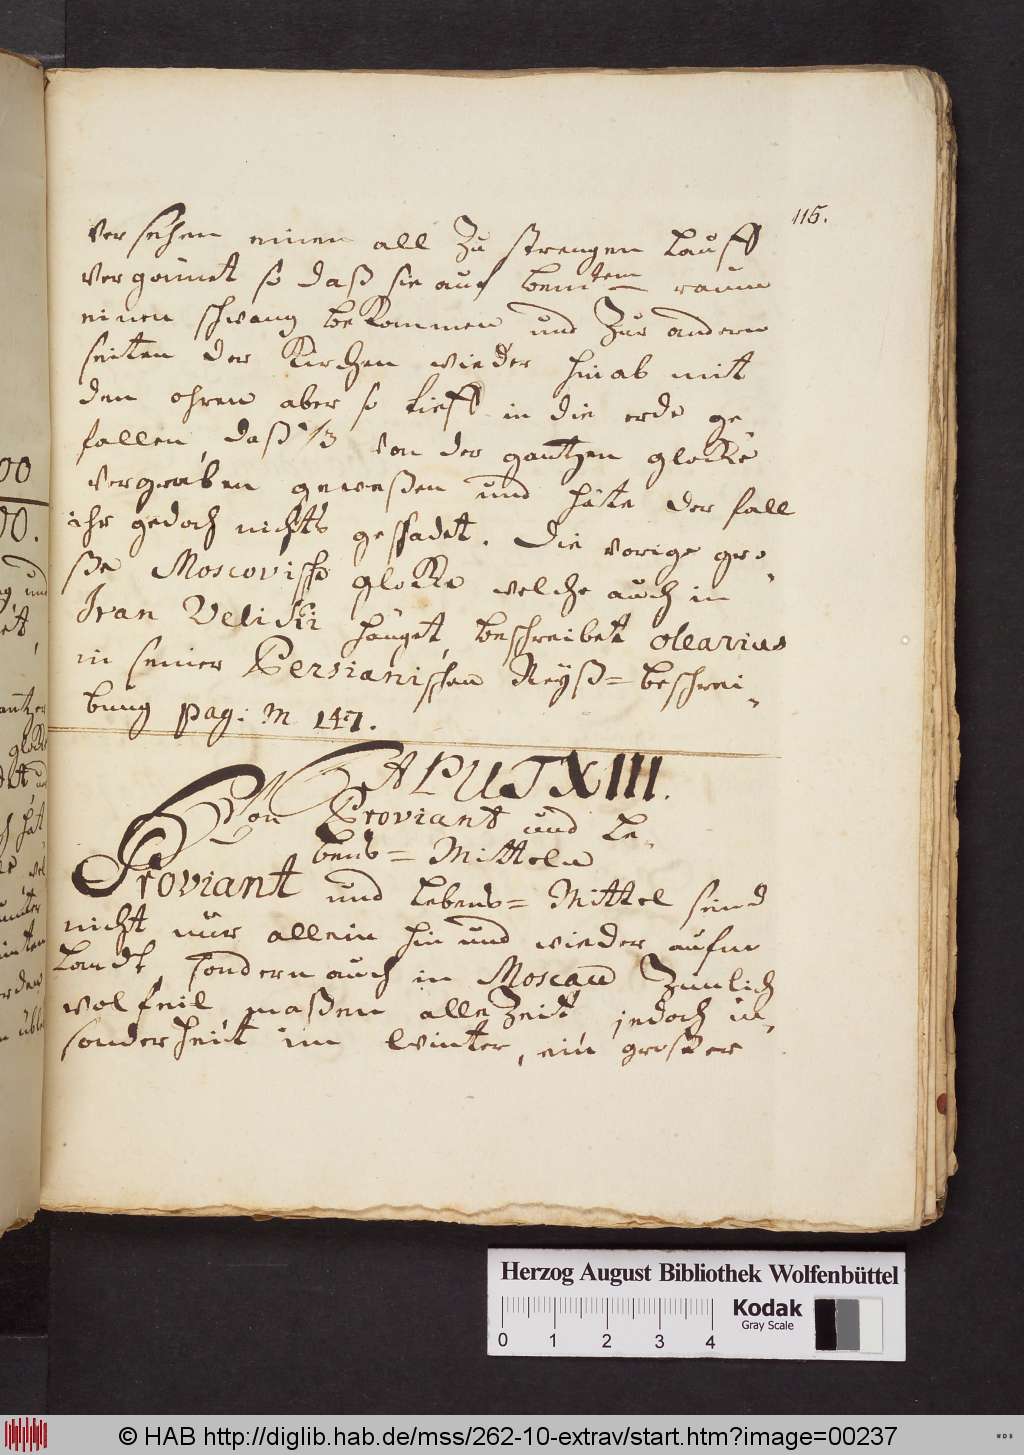 115.
versehen einen all zu strengen Lauff
vergönnet so daß sie auf bemtem raum
einen schwang bekommen und Zur andern
seiten der Kirchen wieder hinab mit
den ohren aber so tieff in die erde ge
fallen, daß 1/3 von der gantzen glocke
vergraben geweßen und häte der fall
ihr gedoch nichts geschadet. Die vorige gro,
ße Moscovische glocke welche auch in
Ivan Velikii hänget, beschreibet olearius
in seiner Persianischen Reyß= beschrei,
bung pag: m 147.
CAPUT XIII.
Von Proviant und Le,
bens= Mitteln
Proviant und Lebens= Mittel seind
nicht nur allein hin und wieder aufm
Landt, sondern auch in Moscau Zimlich
wolfeil, maßen alle Zeit, jedoch in,
sonderheit im Winter, ein großer
00
00.
und
glocke
Herzog August Bibliothek Wolfenbüttel
0 1 2 3 4
Kodak
Gray Scale
© HAB http://diglib.hab.de/mss/262-10-extrav/start.htm?image=00237